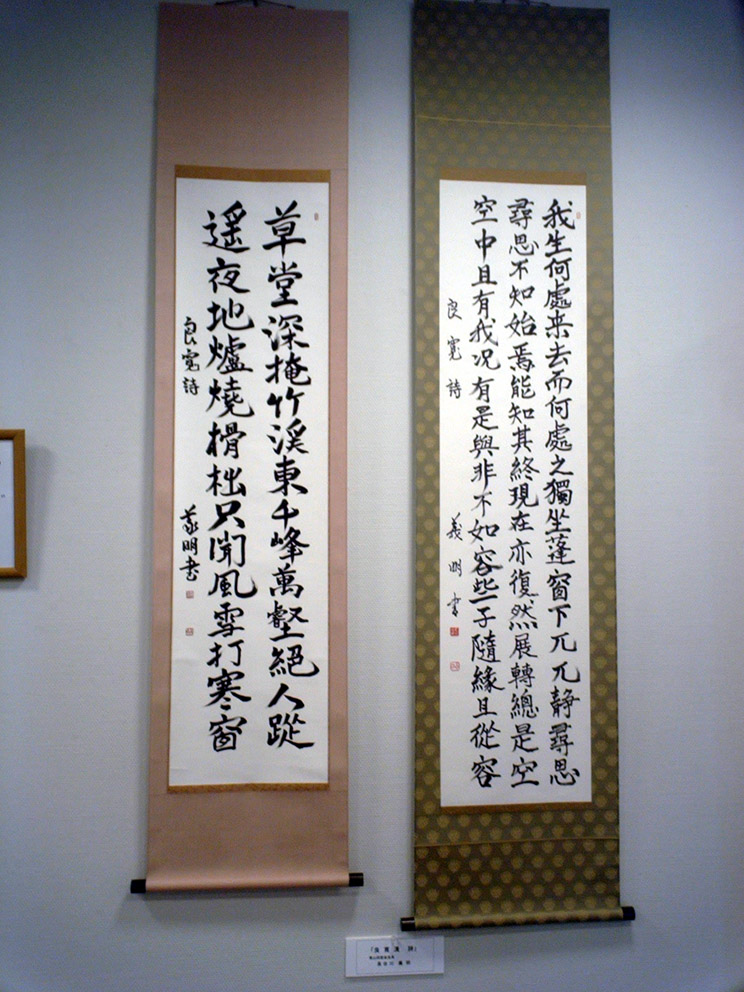 我生何處来去而何處之獨坐蓬窗下兀兀静尋思
尋思不知始焉能知其終現在亦復然展轉總是空
空中且有我况有是與非不如容些子隨緣且從容
良寛詩
義明書
草堂深掩竹渓東千峰萬壑絕人蹤
遥夜地爐燒榾柮只聞風雪打寒窗
良寛詩
義明書
「良寛漢詩」